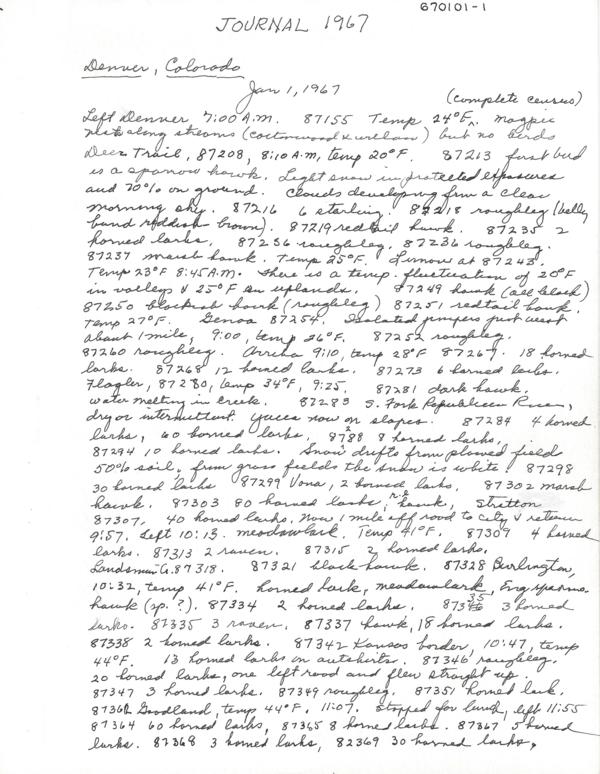 670101-1
JOURNAL 1967
Denver, Colorado
Jan 1, 1967
(complete census)
Left Denver 7:00 A.M. 87155 Temp 24°F. magpie
nests along streams (cottonwood & willow) but no birds
Deer Trail, 87208, 8:10 A.M, temp 20°F. 87213 first bird
is a sparrow hawk. Light snow in protected exposures
and 70% on ground. Clouds developing from a clear
morning sky. 87216 6 starling. 87218 roughleg (belly
band reddish brown). 87219 redtail hawk. 87235 2
horned larks, 87236 roughleg. 87236 roughleg.
87237 marsh hawk. Temp 25°F. Limon at 87243.
Temp 23°F 8:45 A.M. There is a temp. fluctuation of 20°F
in valleys & 25°F on uplands. 87249 hawk (all black)
87250 blackish hawk (roughleg) 87251 redtail hawk.
Temp 27°F. Genoa 87254. Isolated junipers just west
about 1 mile, 9:00, temp 26°F. 87252 roughleg.
87260 roughleg. Arriba 9:10, temp 28°F 87267. 18 horned
larks. 87268 12 horned larks. 87273 6 horned larks.
Flagler, 87280, temp 34°F, 9:25. 87281 dark hawk.
Water melting in creek. 87283 S. Fork Republican River,
dry or intermittent. Yucca now on slopes. 87284 4 horned
larks, 60 horned larks, 8 horned larks,
87294 10 horned larks. Snow drifts from plowed field
50% soil, from grass fields the snow is white 87298
30 horned larks 87299 Vona, 2 horned larks, 87302 marsh
hawk. 87303 80 horned larks, hawk, Stratton
87307, 40 horned larks. Now 1 mile off road to city & return
9:57. Left 10:13. meadowlark. Temp 41°F. 87309 4 horned
larks. 87313 2 raven. 87315 2 horned larks.
87318. 87321 black hawk. 87328 Burlington,
10:32, temp 41°F. horned lark, meadowlark, Eng sparrow.
hawk (sp. ?). 87334 2 horned larks. 3 horned
larks. 87335 3 raven. 87337 hawk, 18 horned larks.
87338 2 horned larks. 87342 Kansas border, 10:47, temp
44°F. 13 horned larks on outskirts. 87346 roughleg.
20 horned larks, one left road and flew straight up.
87347 3 horned larks. 87349 roughleg. 87351 horned lark.
87362 Goodland, temp 44°F. 11:07. Stopped for lunch, left 11:55
87364 60 horned larks, 87365 8 horned larks. 87367 5 horned
larks. 87368 3 horned larks, 82369 30 horned larks,